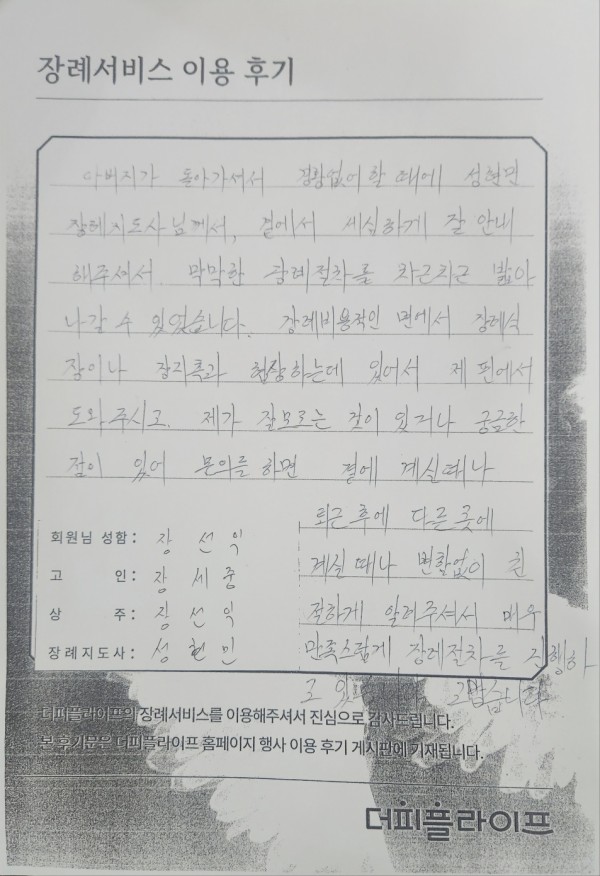 장례서비스 이용 후기
아버지가 돌아가셔서 경황없어 할 때에 성현민
장례지도사님께서, 곁에서 세심하게 잘 안내
해주셔서 막막한 장례절차를 차근차근 밟아
나갈 수 있었습니다. 장례비용적인 면에서 장례식
장이나 장지측과 협상하는데 있어서 제 편에서
도와주시고, 제가 잘모르는 것이 있거나 궁금한
점이 있어 문의를 하면 곁에 계실때나
퇴근 후에 다른 곳에
계실 때나 변함없이 친
절하게 알려주셔서 매우
만족스럽게 장례절차를 진행하
고 있
회원님 성함: 장선익
고 인: 장세중
상 주: 장선익
장례지도사: 성현민
더피플라이프의 장례서비스를 이용해주셔서 진심으로 감사드립니다.
본 후기문은 더피플라이프 홈페이지 행사 이용 후기 게시판에 기재됩니다.
더피플라이프